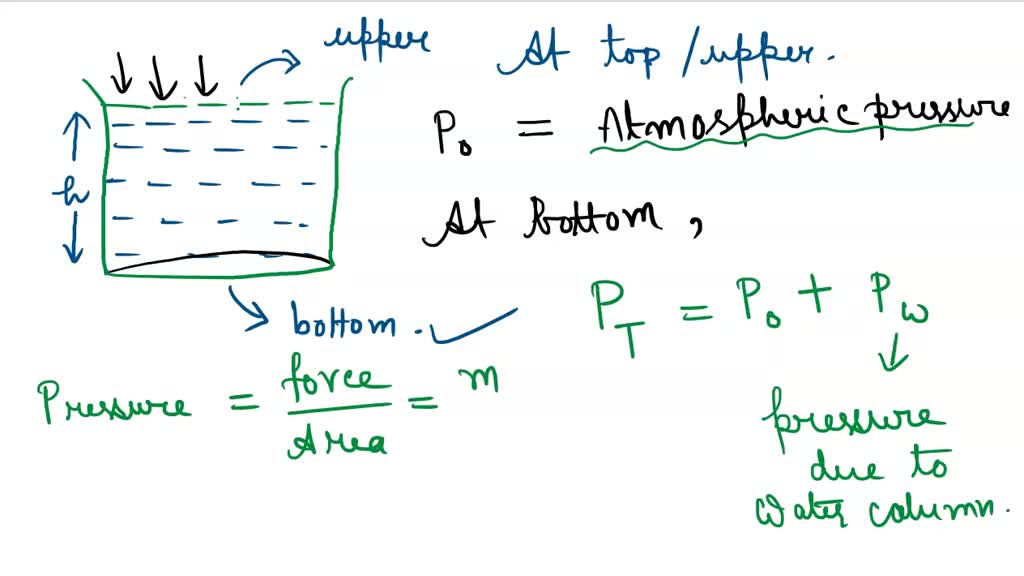 upper
At top / upper.
P₀ = Atmospheric pressure
h
At bottom,
bottom.
P_T = P₀ + P_w
Pressure = force / Area = m
pressure
due to
water column.